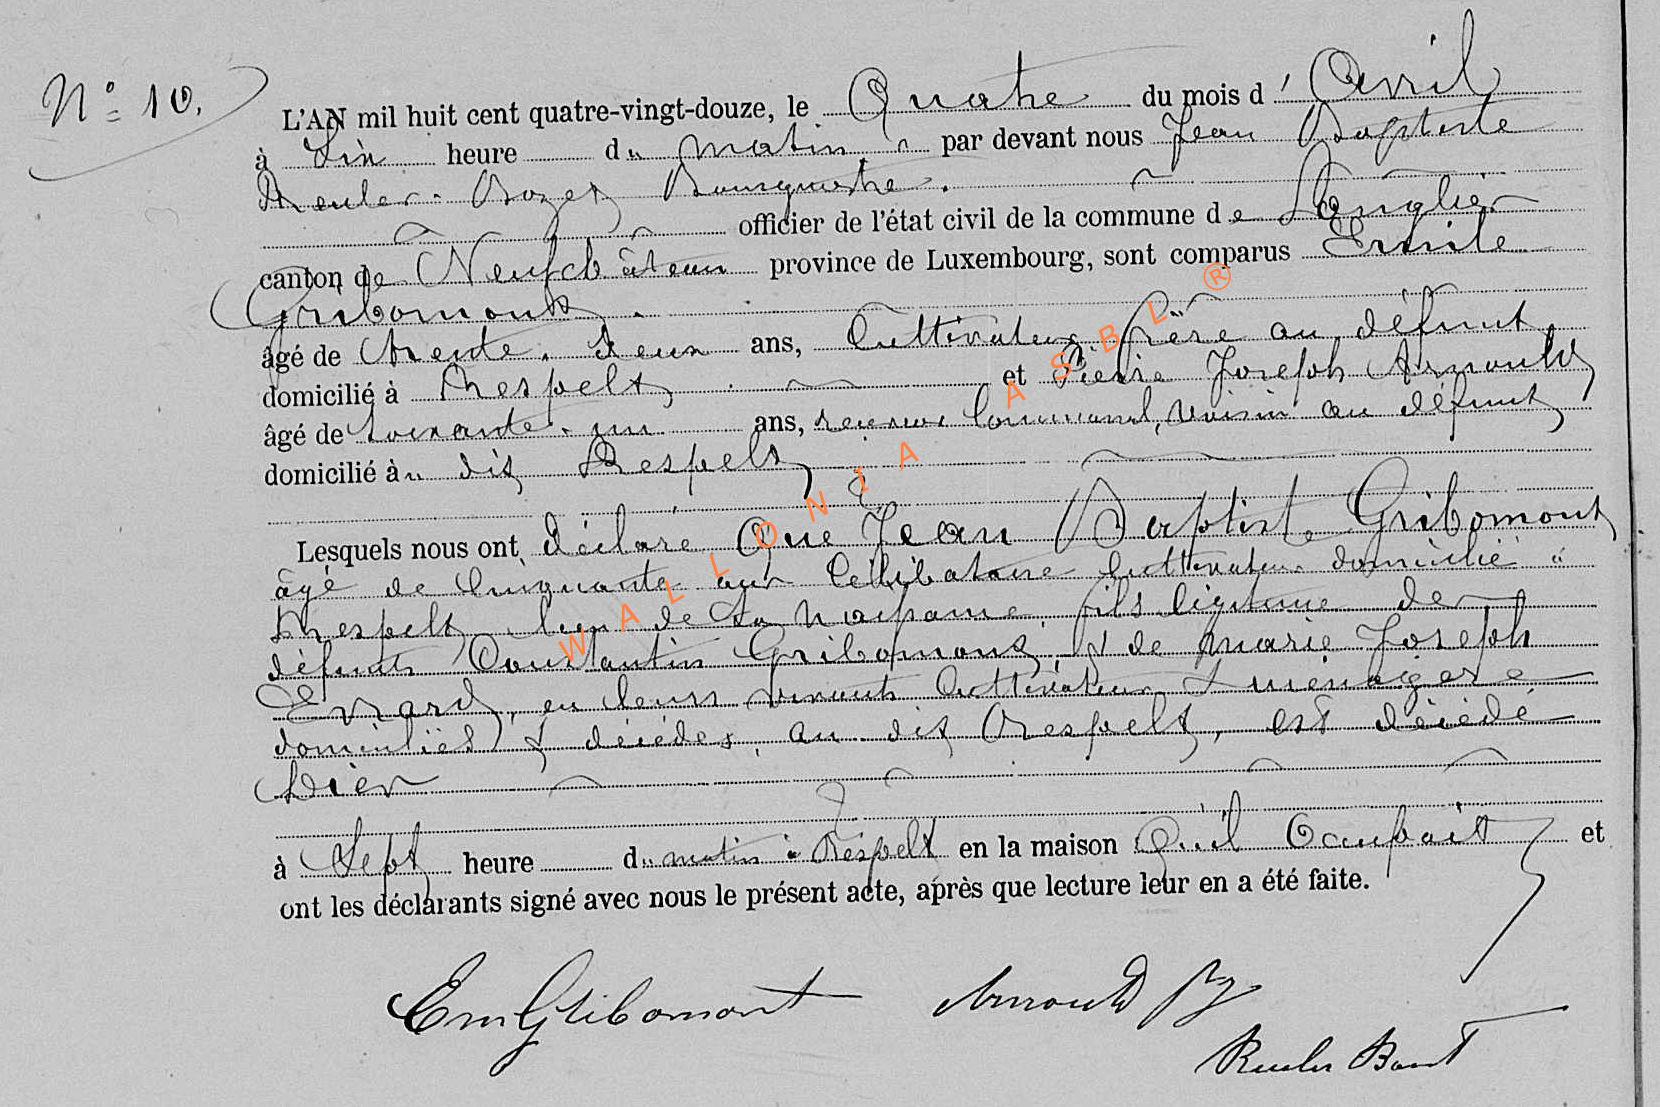 N° 10.
L'AN mil huit cent quatre-vingt-douze, le Quatre du mois d' Avril
à dix heure du matin par devant nous Jean Baptiste
Reuler-Bozet Bourgmestre.
officier de l'état civil de la commune de Longlier
canton de Neufchâteau province de Luxembourg, sont comparus Emile
Gribomont.
âgé de trente-deux ans, Cultivateur, frère au défunt,
domicilié à Respelt et Pierre Joseph Arnould
âgé de soixante-un ans, receveur Communal, voisin au défunt
domicilié au dit Respelt,
Lesquels nous ont déclaré Que Jean Baptiste Gribomont
âgé de Cinquante ans Célibataire Cultivateur domicilié à
Respelt lieu de sa naissance, fils légitime de
défunts Constantin Gribomont, & de Marie Joseph
Evrard, en leurs vivants Cultivateur & ménagère
domiciliés & décédés, au dit Respelt, est décédé
hier
à Sept heure du matin à Respelt en la maison Qu'il Occupait et
ont les déclarants signé avec nous le présent acte, après que lecture leur en a été faite.
Em Gribomont Arnould
Reuler Bozet
WALLONIA ASBL ®